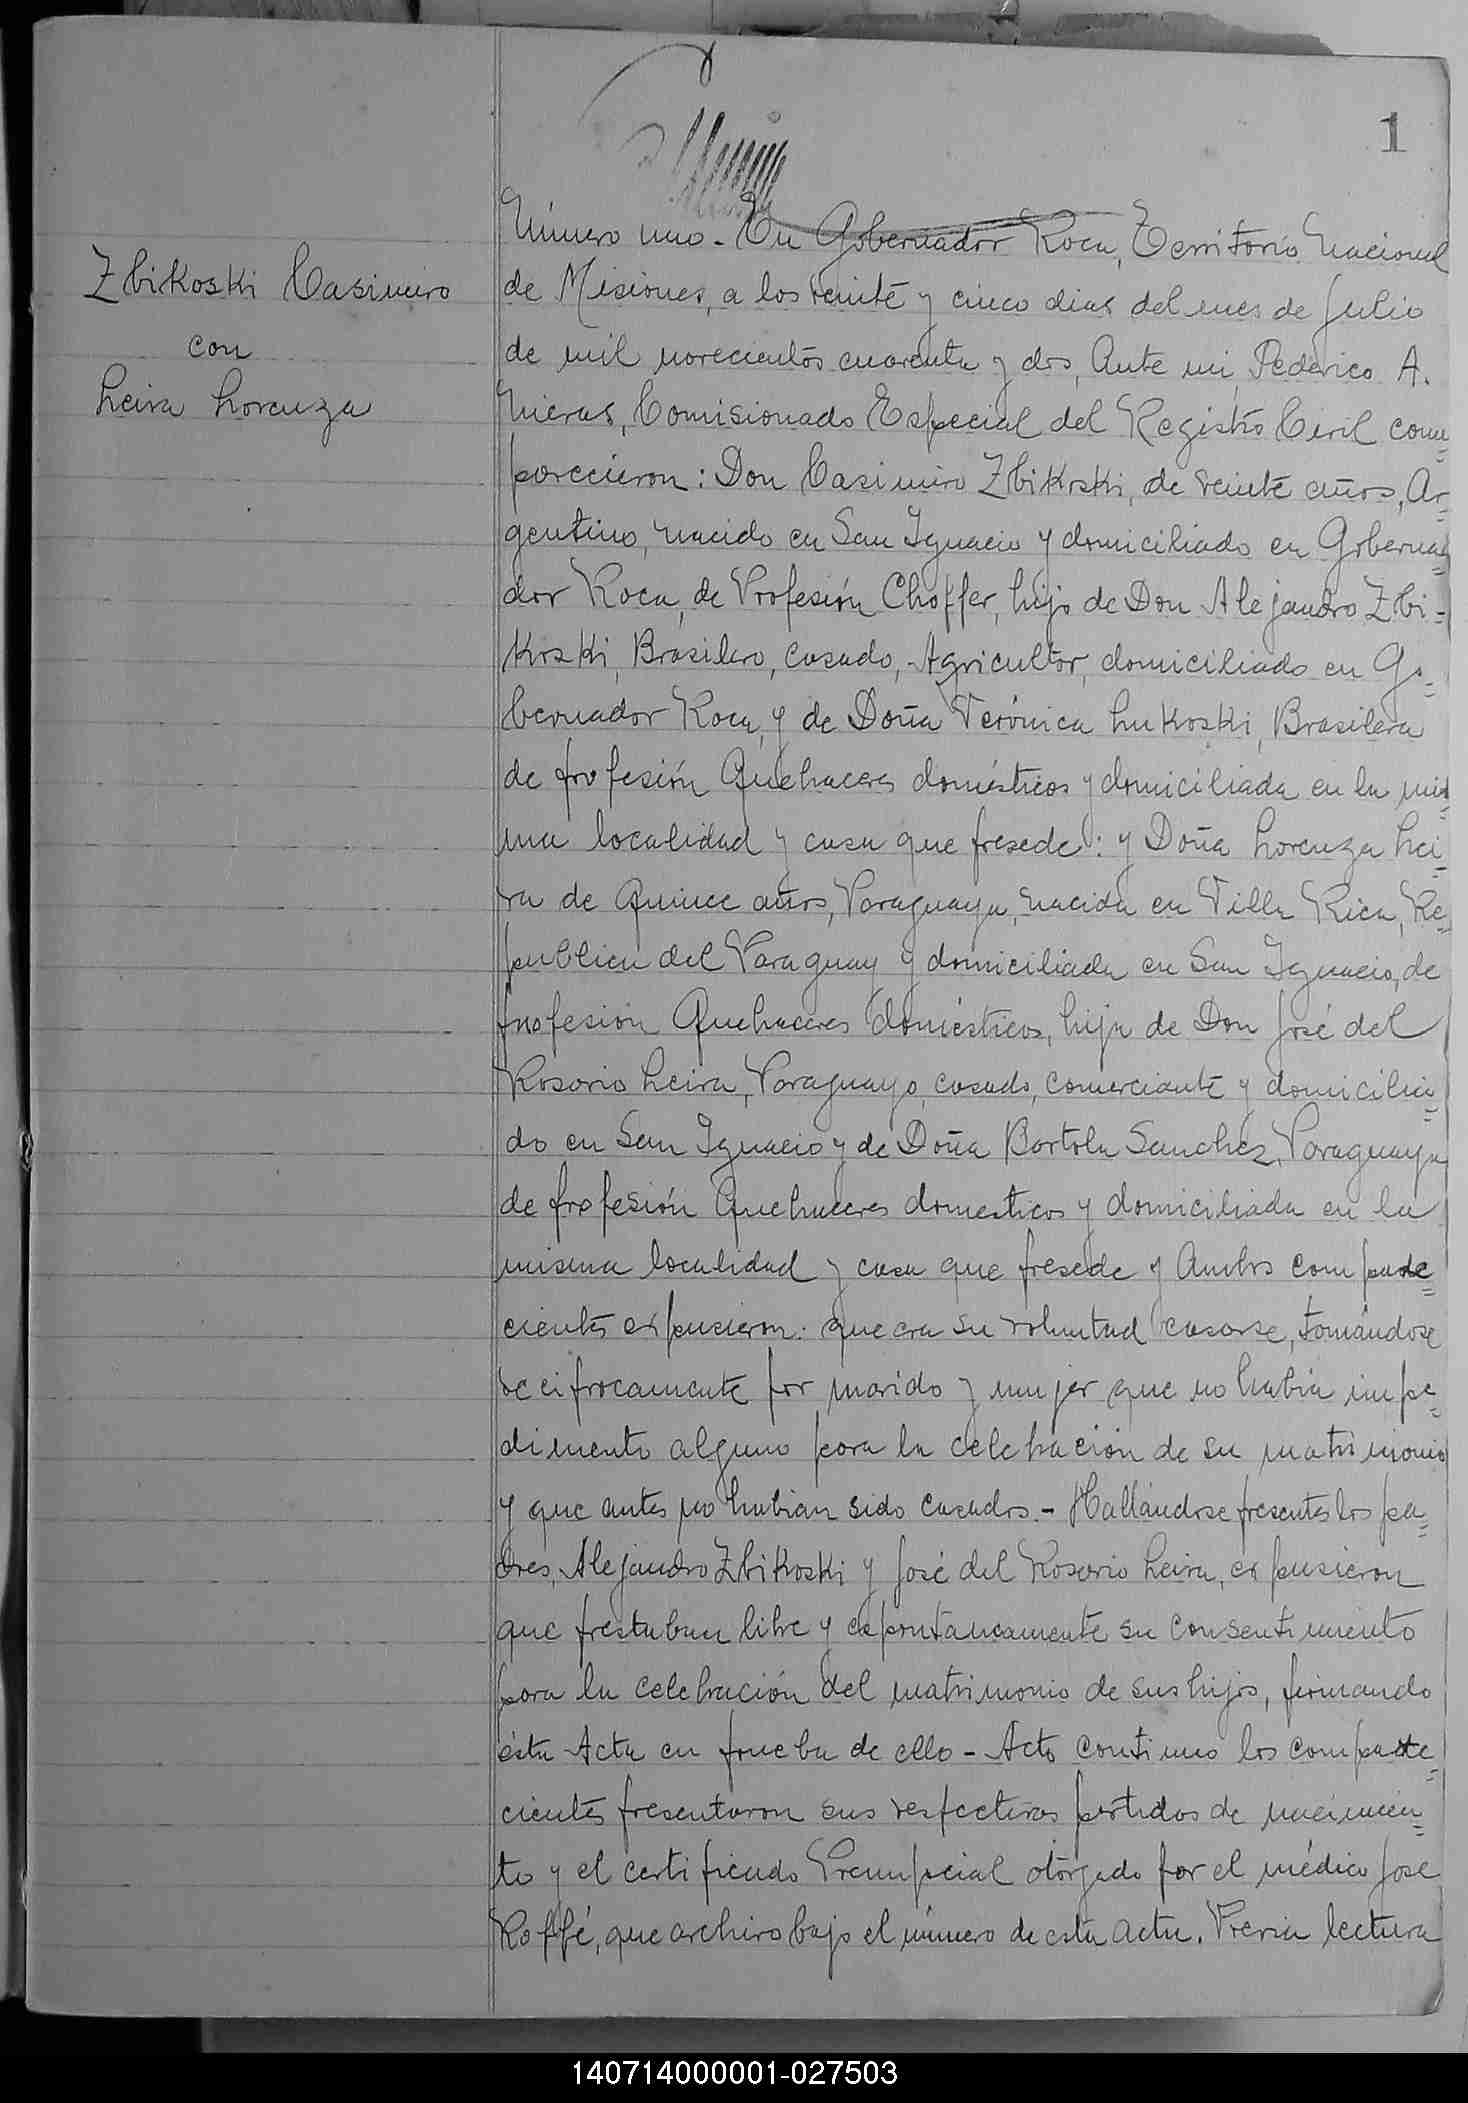 1
Zbikoski Casimiro
con
Leiva Lorenza
Número uno.- En Gobernador Roca, Territorio Nacional
de Misiones, a los veinte y cinco dias del mes de Julio
de mil novecientos cuarenta y dos, Ante mi, Federico A.
Nieras, Comisionado Especial del Registro Civil com=
parecieron: Don Casimiro Zbikoski, de veinte años, Ar=
gentino, nacido en San Ignacio y domiciliado en Goberna=
dor Roca, de Profesión Choffer, hijo de Don Alejandro Zbi=
koski, Brasilero, casado, Agricultor, domiciliado en Go=
bernador Roca, y de Doña Verónica Lukoski, Brasilera
de profesión Quehaceres domésticos y domiciliada en la mis=
ma localidad y casa que presede: y Doña Lorenza Lei=
va de Quince años, Paraguaya, nacida en Villa Rica, Re=
publica del Paraguay y domiciliada en San Ignacio, de
profesión Quehaceres domésticos, hija de Don José del
Rosario Leiva, Paraguayo, casado, comerciante y domicilia=
do en San Ignacio y de Doña Bartola Sanchez, Paraguaya
de profesión Quehaceres domesticos y domiciliada en la
misma localidad y casa que presede y Ambos compare=
cientes expusieron: que era su voluntad casarse, tomándose
reciprocamente por marido y mujer que no habia impe=
dimento alguno para la celebración de su matrimonio
y que antes no habian sido casados.- Hallándose presentes los pa=
dres, Alejandro Zbikoski y José del Rosario Leiva, expusieron
que prestaban libre y espontaneamente su consentimiento
para la celebración del matrimonio de sus hijos, firmando
ésta Acta en prueba de ello - Acto continuo los compare=
cientes presentaron sus respectivas partidas de nacimien=
to y el certificado Prenupcial otorgado por el médico José
Roffé, que archivo bajo el número de esta acta. Previa lectura
140714000001-027503